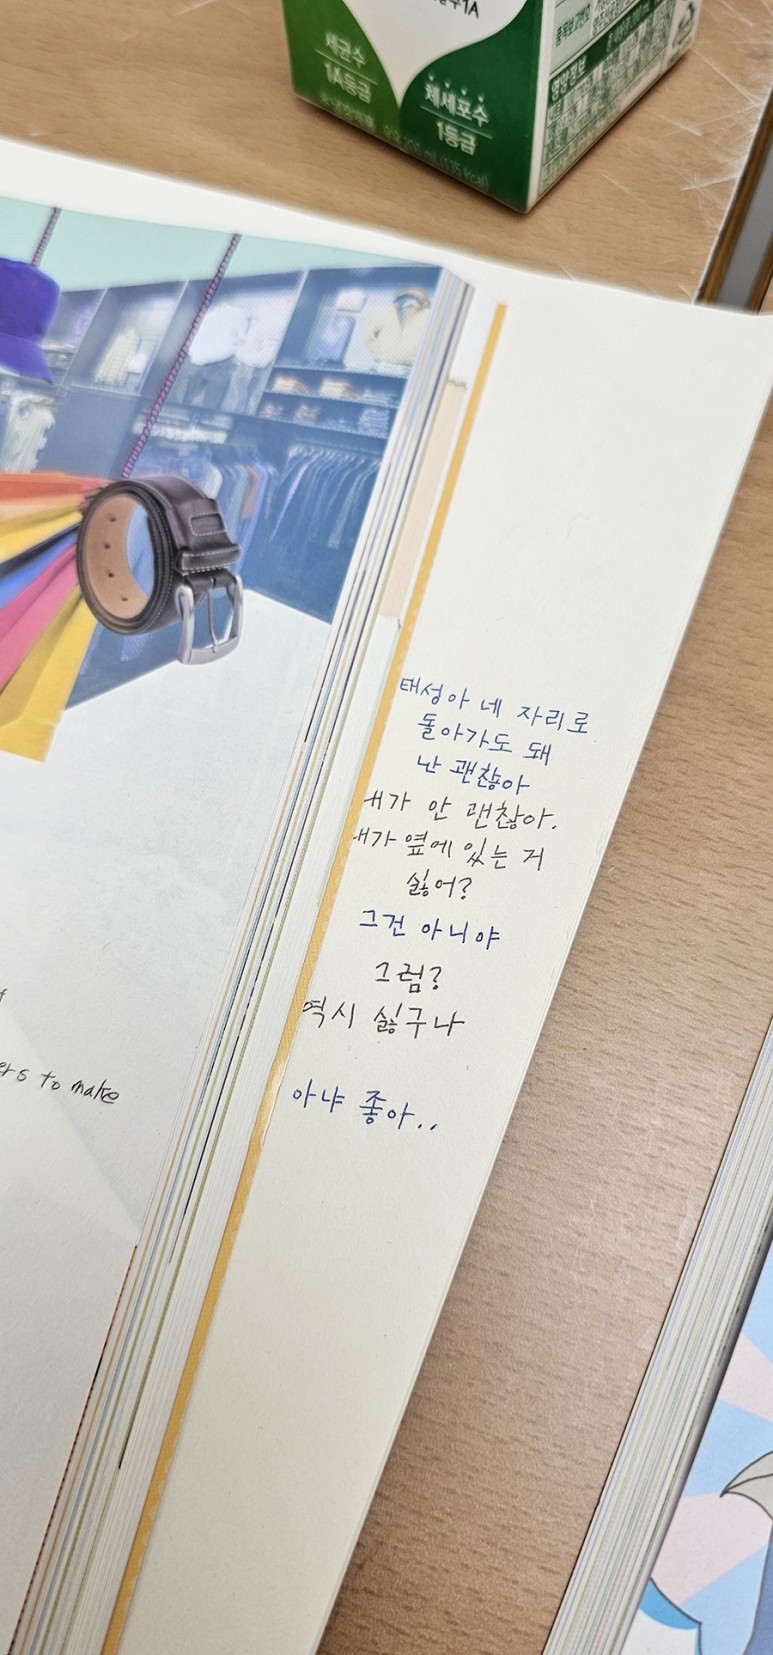 세균수
1A등급
체세포수
1등급
영양정보
태성아 네 자리로
돌아가도 돼
난 괜찮아
내가 안 괜찮아.
내가 옆에 있는 거
싫어?
그건 아니야
그럼?
역시 싫구나
아냐 좋아..
to make